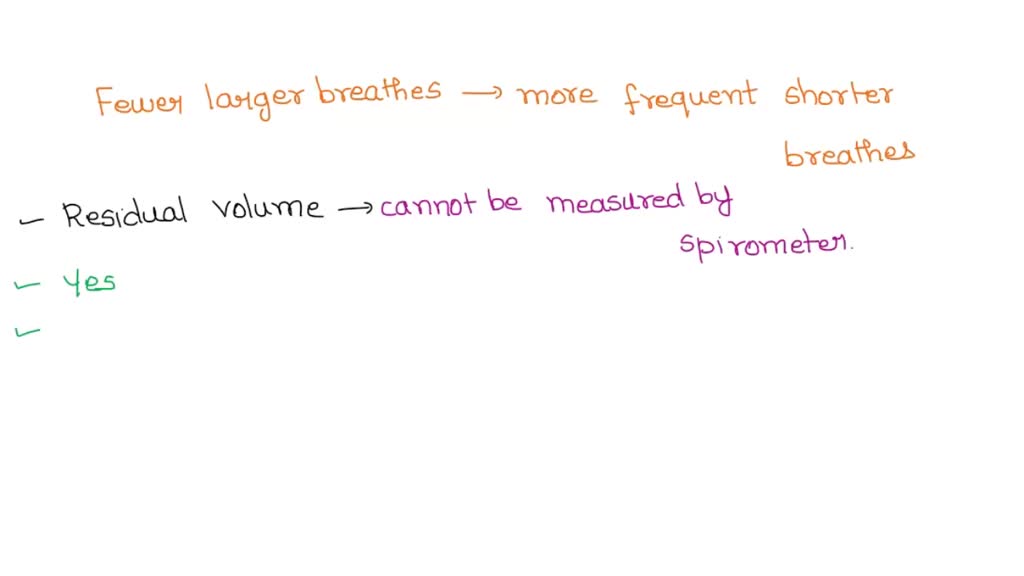 Fewer larger breathes → more frequent shorter
breathes
- Residual volume → cannot be measured by
spirometer.
- Yes
-